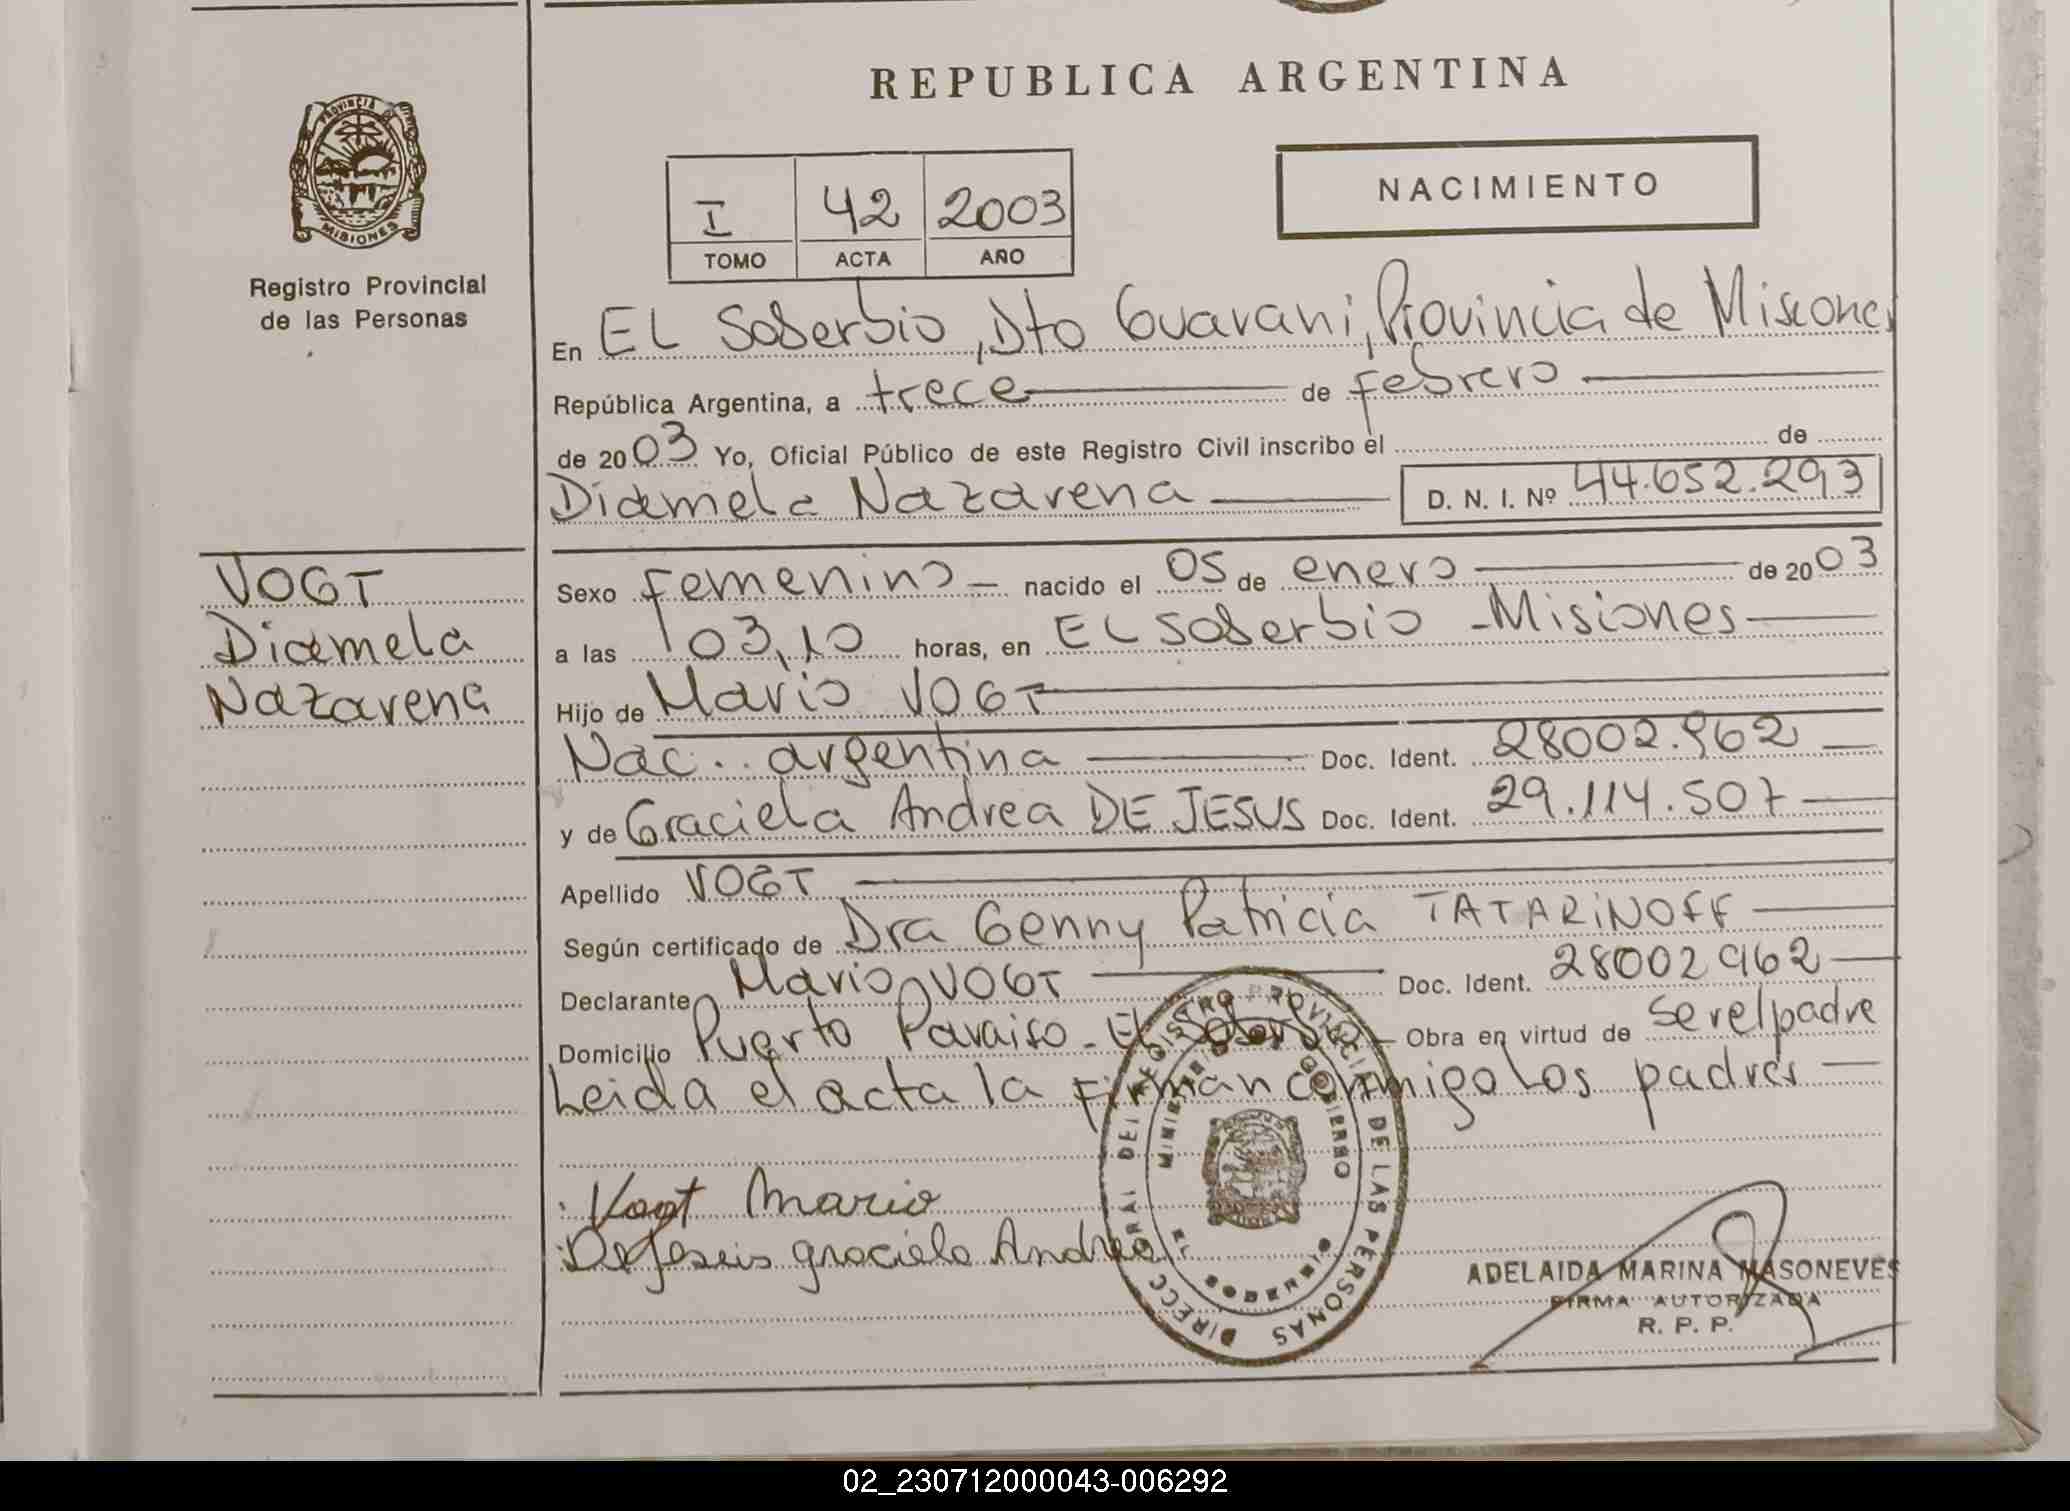 REPUBLICA ARGENTINA
PROVINCIA DE MISIONES
Registro Provincial
de las Personas
NACIMIENTO
I 42 2003
TOMO ACTA AÑO
En EL Soberbio, Dto Guarani, Provincia de Misiones
República Argentina, a trece de febrero
de 2003 Yo, Oficial Público de este Registro Civil inscribo el de
Diamela Nazarena D. N. I. Nº 44.652.293
VOGT
Diamela
Nazarena
Sexo femenino nacido el 05 de enero de 2003
a las 03,10 horas, en EL Soberbio - Misiones
Hijo de Mario VOGT
Nac. argentina Doc. Ident. 28002.962
y de Graciela Andrea DE JESUS Doc. Ident. 29.114.507
Apellido VOGT
Según certificado de Dra Genny Patricia TATARINOFF
Declarante Mario VOGT Doc. Ident. 28002962
Domicilio Puerto Paraiso - El Soberbio Obra en virtud de ser el padre
Leida el acta la firman conmigo los padres
Vogt Mario
De Jesus graciela Andrea
DIRECC GRAL DEL REGISTRO PROVINCIAL DE LAS PERSONAS
MINISTERIO DE GOBIERNO
MISIONES
ADELAIDA MARINA MASONEVES
FIRMA AUTORIZADA
R. P. P.
02_230712000043-006292